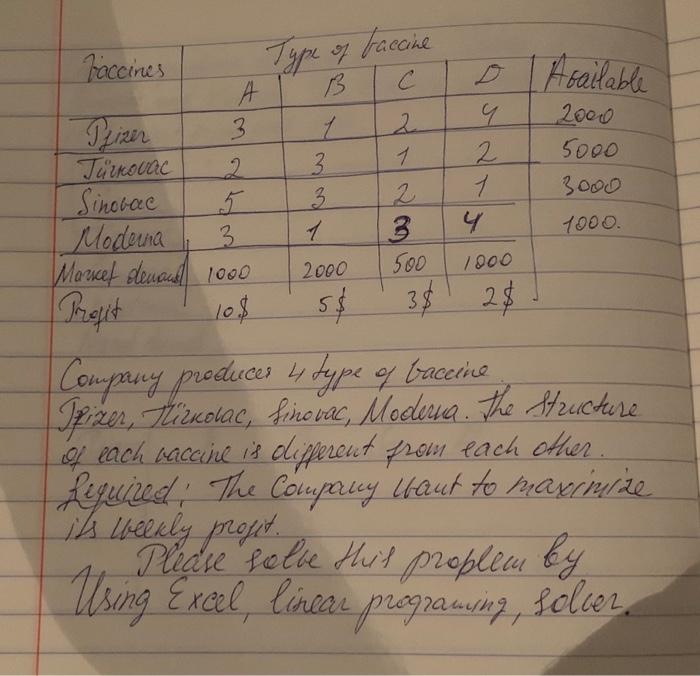 Vaccines Type of vaccine Available
A B C D
Pfizer 3 1 2 4 2000
Türkovac 2 3 1 2 5000
Sinovac 5 3 2 1 3000
Moderna 3 1 3 4 1000.
Market demand 1000 2000 500 1000
Profit 10$ 5$ 3$ 2$
Company produces 4 type of vaccine
Pfizer, Türkovac, Sinovac, Moderna. The structure
of each vaccine is different from each other.
Required: The Company want to maximize
its weekly profit.
Please solve this problem by
Using Excel, linear programing, solver.